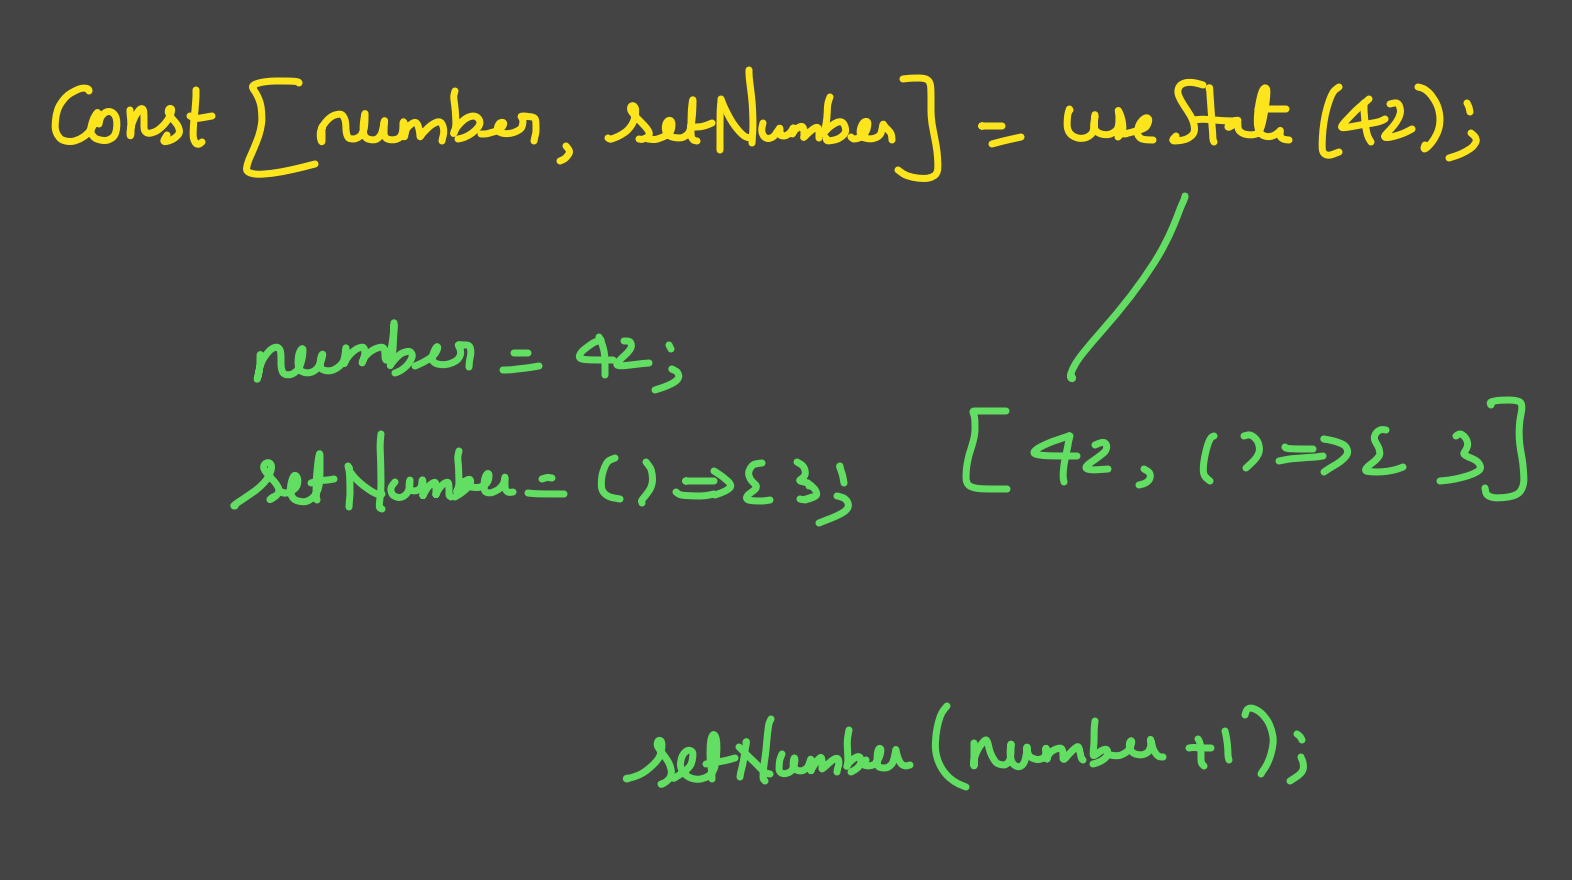 Const [number, setNumber] = useState(42);
number = 42;
setNumber = () => { };
[42, () => { }]
setNumber(number +1);